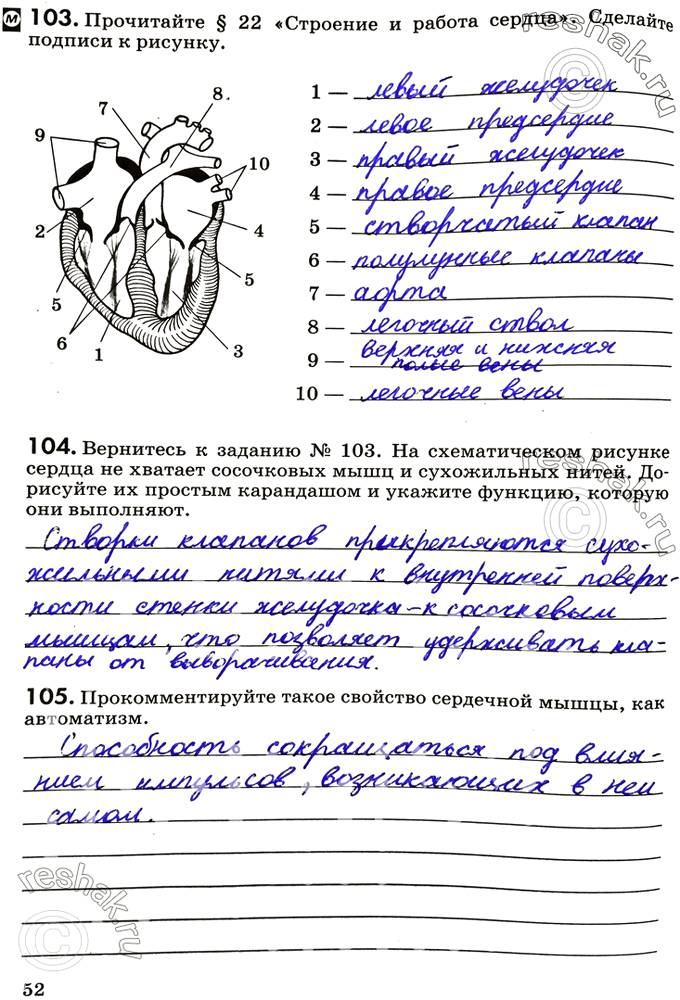 М 103. Прочитайте § 22 «Строение и работа сердца». Сделайте
подписи к рисунку.
7
8
9
10
2
4
5
5
6
1
3
1 — левый желудочек
2 — левое предсердие
3 — правый желудочек
4 — правое предсердие
5 — створчатый клапан
6 — полулунные клапаны
7 — аорта
8 — легочный ствол
9 — верхняя и нижняя
полые вены
10 — легочные вены
104. Вернитесь к заданию № 103. На схематическом рисунке
сердца не хватает сосочковых мышц и сухожильных нитей. До-
рисуйте их простым карандашом и укажите функцию, которую
они выполняют.
Створки клапанов прикрепляются сухо-
жильными нитями к внутренней поверх-
ности стенки желудочка-к сосочковым
мышцам, что позволяет удерживать кла-
паны от выворачивания.
105. Прокомментируйте такое свойство сердечной мышцы, как
автоматизм.
Способность сокращаться под влия-
нием импульсов, возникающих в неи
самом.
52
reshak.ru
reshak.ru
reshak.ru
reshak.ru